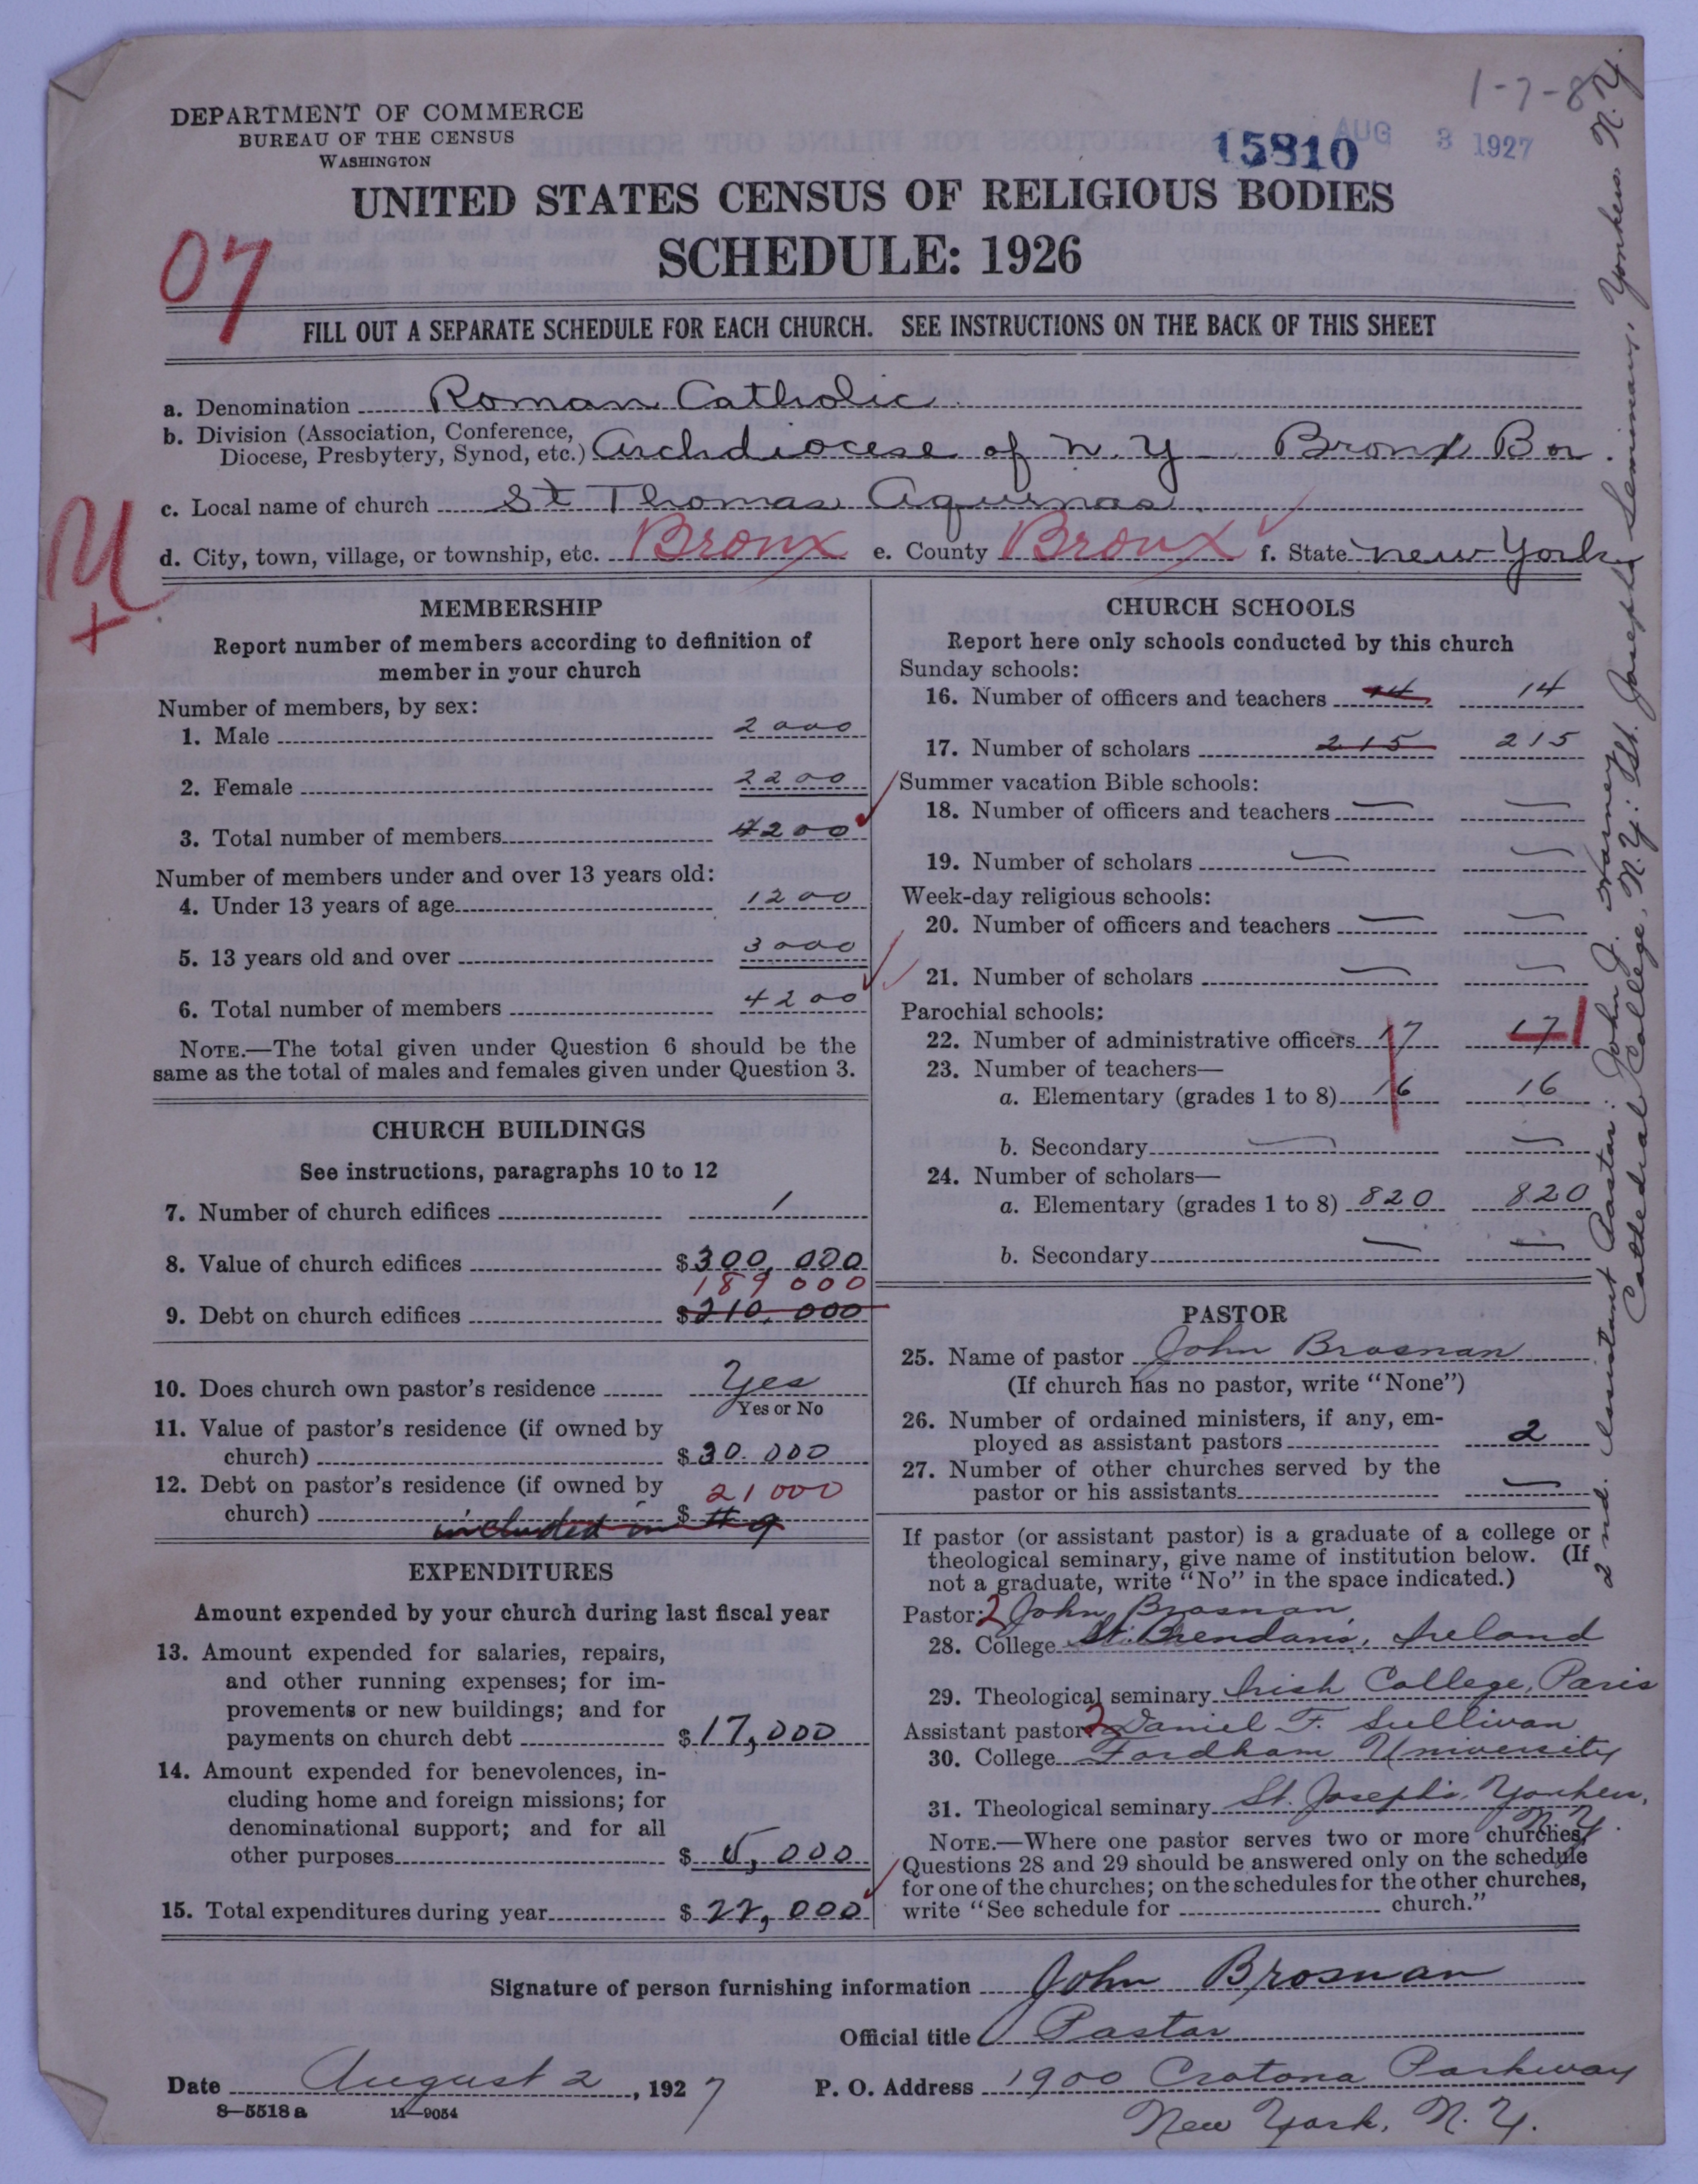 1-7-8
DEPARTMENT OF COMMERCE
BUREAU OF THE CENSUS
WASHINGTON
15810
AUG 3 1927
UNITED STATES CENSUS OF RELIGIOUS BODIES
SCHEDULE: 1926
07
FILL OUT A SEPARATE SCHEDULE FOR EACH CHURCH. SEE INSTRUCTIONS ON THE BACK OF THIS SHEET
a. Denomination Roman Catholic
b. Division (Association, Conference,
Diocese, Presbytery, Synod, etc.) Archdiocese of N. Y - Bronx Bor.
c. Local name of church St Thomas Aquinas
d. City, town, village, or township, etc. Bronx e. County Bronx f. State New York
MEMBERSHIP
Report number of members according to definition of
member in your church
Number of members, by sex:
1. Male 2000
2. Female 2200
3. Total number of members 4200
Number of members under and over 13 years old:
4. Under 13 years of age 1200
5. 13 years old and over 3000
6. Total number of members 4200
NOTE.—The total given under Question 6 should be the
same as the total of males and females given under Question 3.
CHURCH BUILDINGS
See instructions, paragraphs 10 to 12
7. Number of church edifices 1
8. Value of church edifices $300,000
189 000
9. Debt on church edifices $210,000
10. Does church own pastor's residence Yes
Yes or No
11. Value of pastor's residence (if owned by
church) $30.000
12. Debt on pastor's residence (if owned by
21 000
church) included in $ #9
EXPENDITURES
Amount expended by your church during last fiscal year
13. Amount expended for salaries, repairs,
and other running expenses; for im-
provements or new buildings; and for
payments on church debt $17,000
14. Amount expended for benevolences, in-
cluding home and foreign missions; for
denominational support; and for all
other purposes $5,000
15. Total expenditures during year $22,000
CHURCH SCHOOLS
Report here only schools conducted by this church
Sunday schools:
16. Number of officers and teachers 14 14
17. Number of scholars 215 215
Summer vacation Bible schools:
18. Number of officers and teachers — —
19. Number of scholars — —
Week-day religious schools:
20. Number of officers and teachers — —
21. Number of scholars — —
Parochial schools:
22. Number of administrative officers 17 17 1
23. Number of teachers—
a. Elementary (grades 1 to 8) 16 16
b. Secondary — —
24. Number of scholars—
a. Elementary (grades 1 to 8) 820 820
b. Secondary — —
PASTOR
25. Name of pastor John Brosnan
(If church has no pastor, write "None")
26. Number of ordained ministers, if any, em-
ployed as assistant pastors 2
27. Number of other churches served by the
pastor or his assistants —
If pastor (or assistant pastor) is a graduate of a college or
theological seminary, give name of institution below. (If
not a graduate, write "No" in the space indicated.)
Pastor: 2 John Brosnan,
28. College St. Brendan's, Ireland
29. Theological seminary Irish College, Paris
Assistant pastor: 2 Daniel F. Sullivan
30. College Fordham University
31. Theological seminary St. Joseph's, Yonkers,
N.Y.
NOTE.—Where one pastor serves two or more churches,
Questions 28 and 29 should be answered only on the schedule
for one of the churches; on the schedules for the other churches,
write "See schedule for church."
2nd. Assistant Pastor: John J.
Cathedral College, N.Y.: St. Joseph's Seminary, Yonkers N.Y.
Signature of person furnishing information John Brosnan
Official title Pastor
Date August 2, 1927 P. O. Address 1900 Crotona Parkway
New York, N.Y.
8—5518 a 11—9054